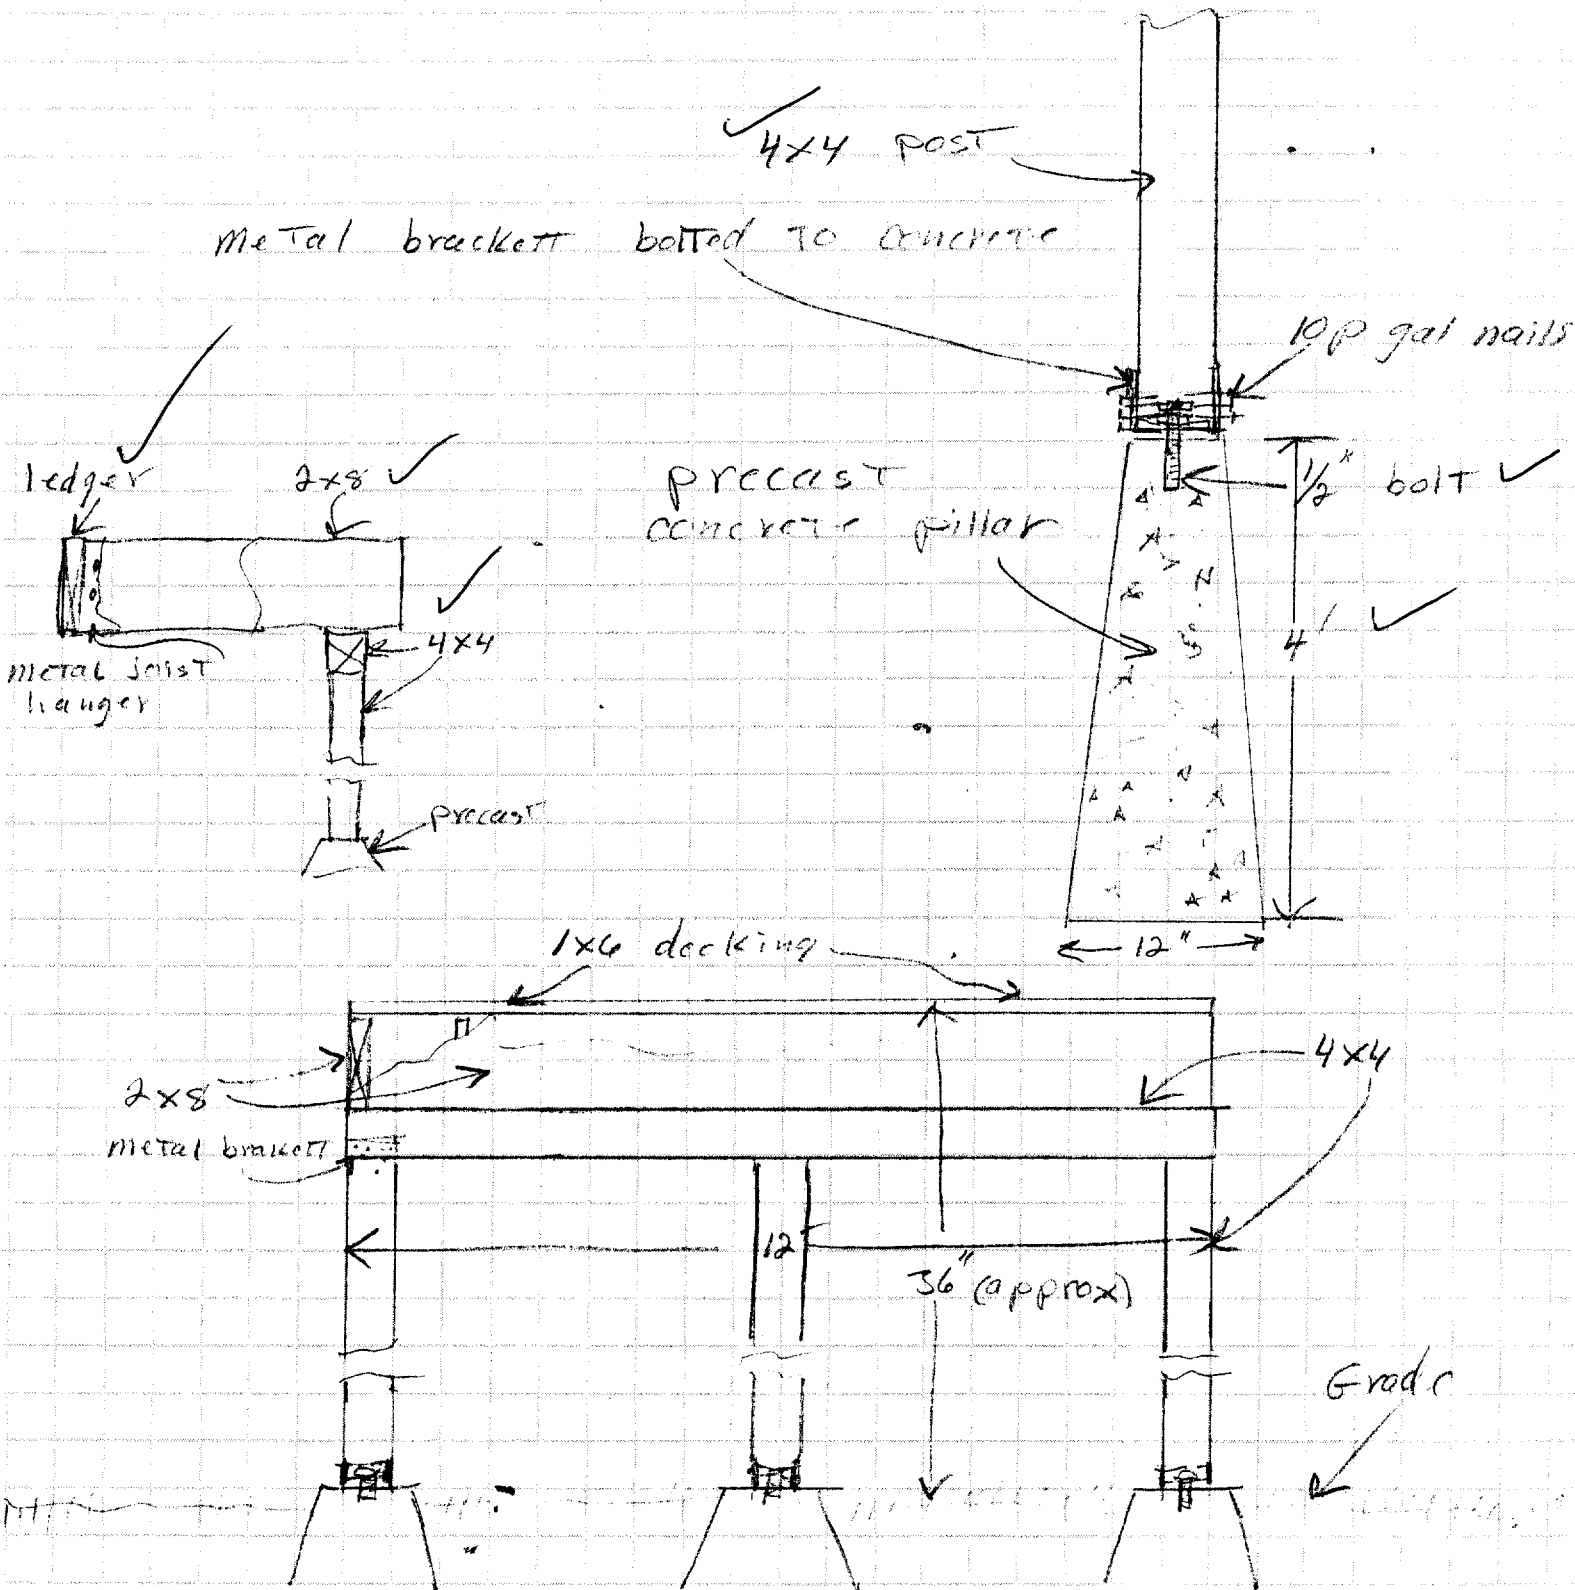 4x4 post
metal brackett bolted to concrete
10p gal nails
ledger
2x8
precast
concrete pillar
1/2" bolt
4x4
4'
metal joist
hanger
precast
12"
1x6 decking
2x8
4x4
metal brakett
12'
36" (approx)
Grade